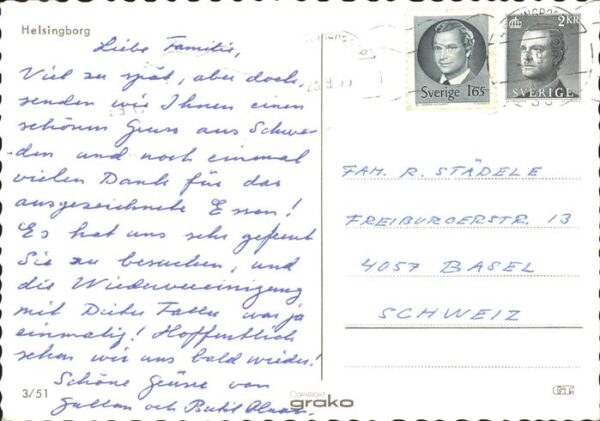 Helsingborg
Liebe Familie,
Viel zu spät, aber doch,
senden wir Ihnen einen
schönen Gruss aus Schwe-
den und noch einmal
vielen Dank für das
ausgezeichnete Essen!
Es hat uns sehr gefreut
Sie zu besuchen, und
die Wiedervereinigung
mit Dieter Faller war ja
einmalig! Hoffentlich
sehen wir uns bald wieder!
Schöne Grüsse von
och Bertil
3/51
COPYRIGHT
grako
Sverige 165
2 KR
SVERIGE
FAM. R. STÄDELE
FREIBURGERSTR. 13
4057 BASEL
SCHWEIZ